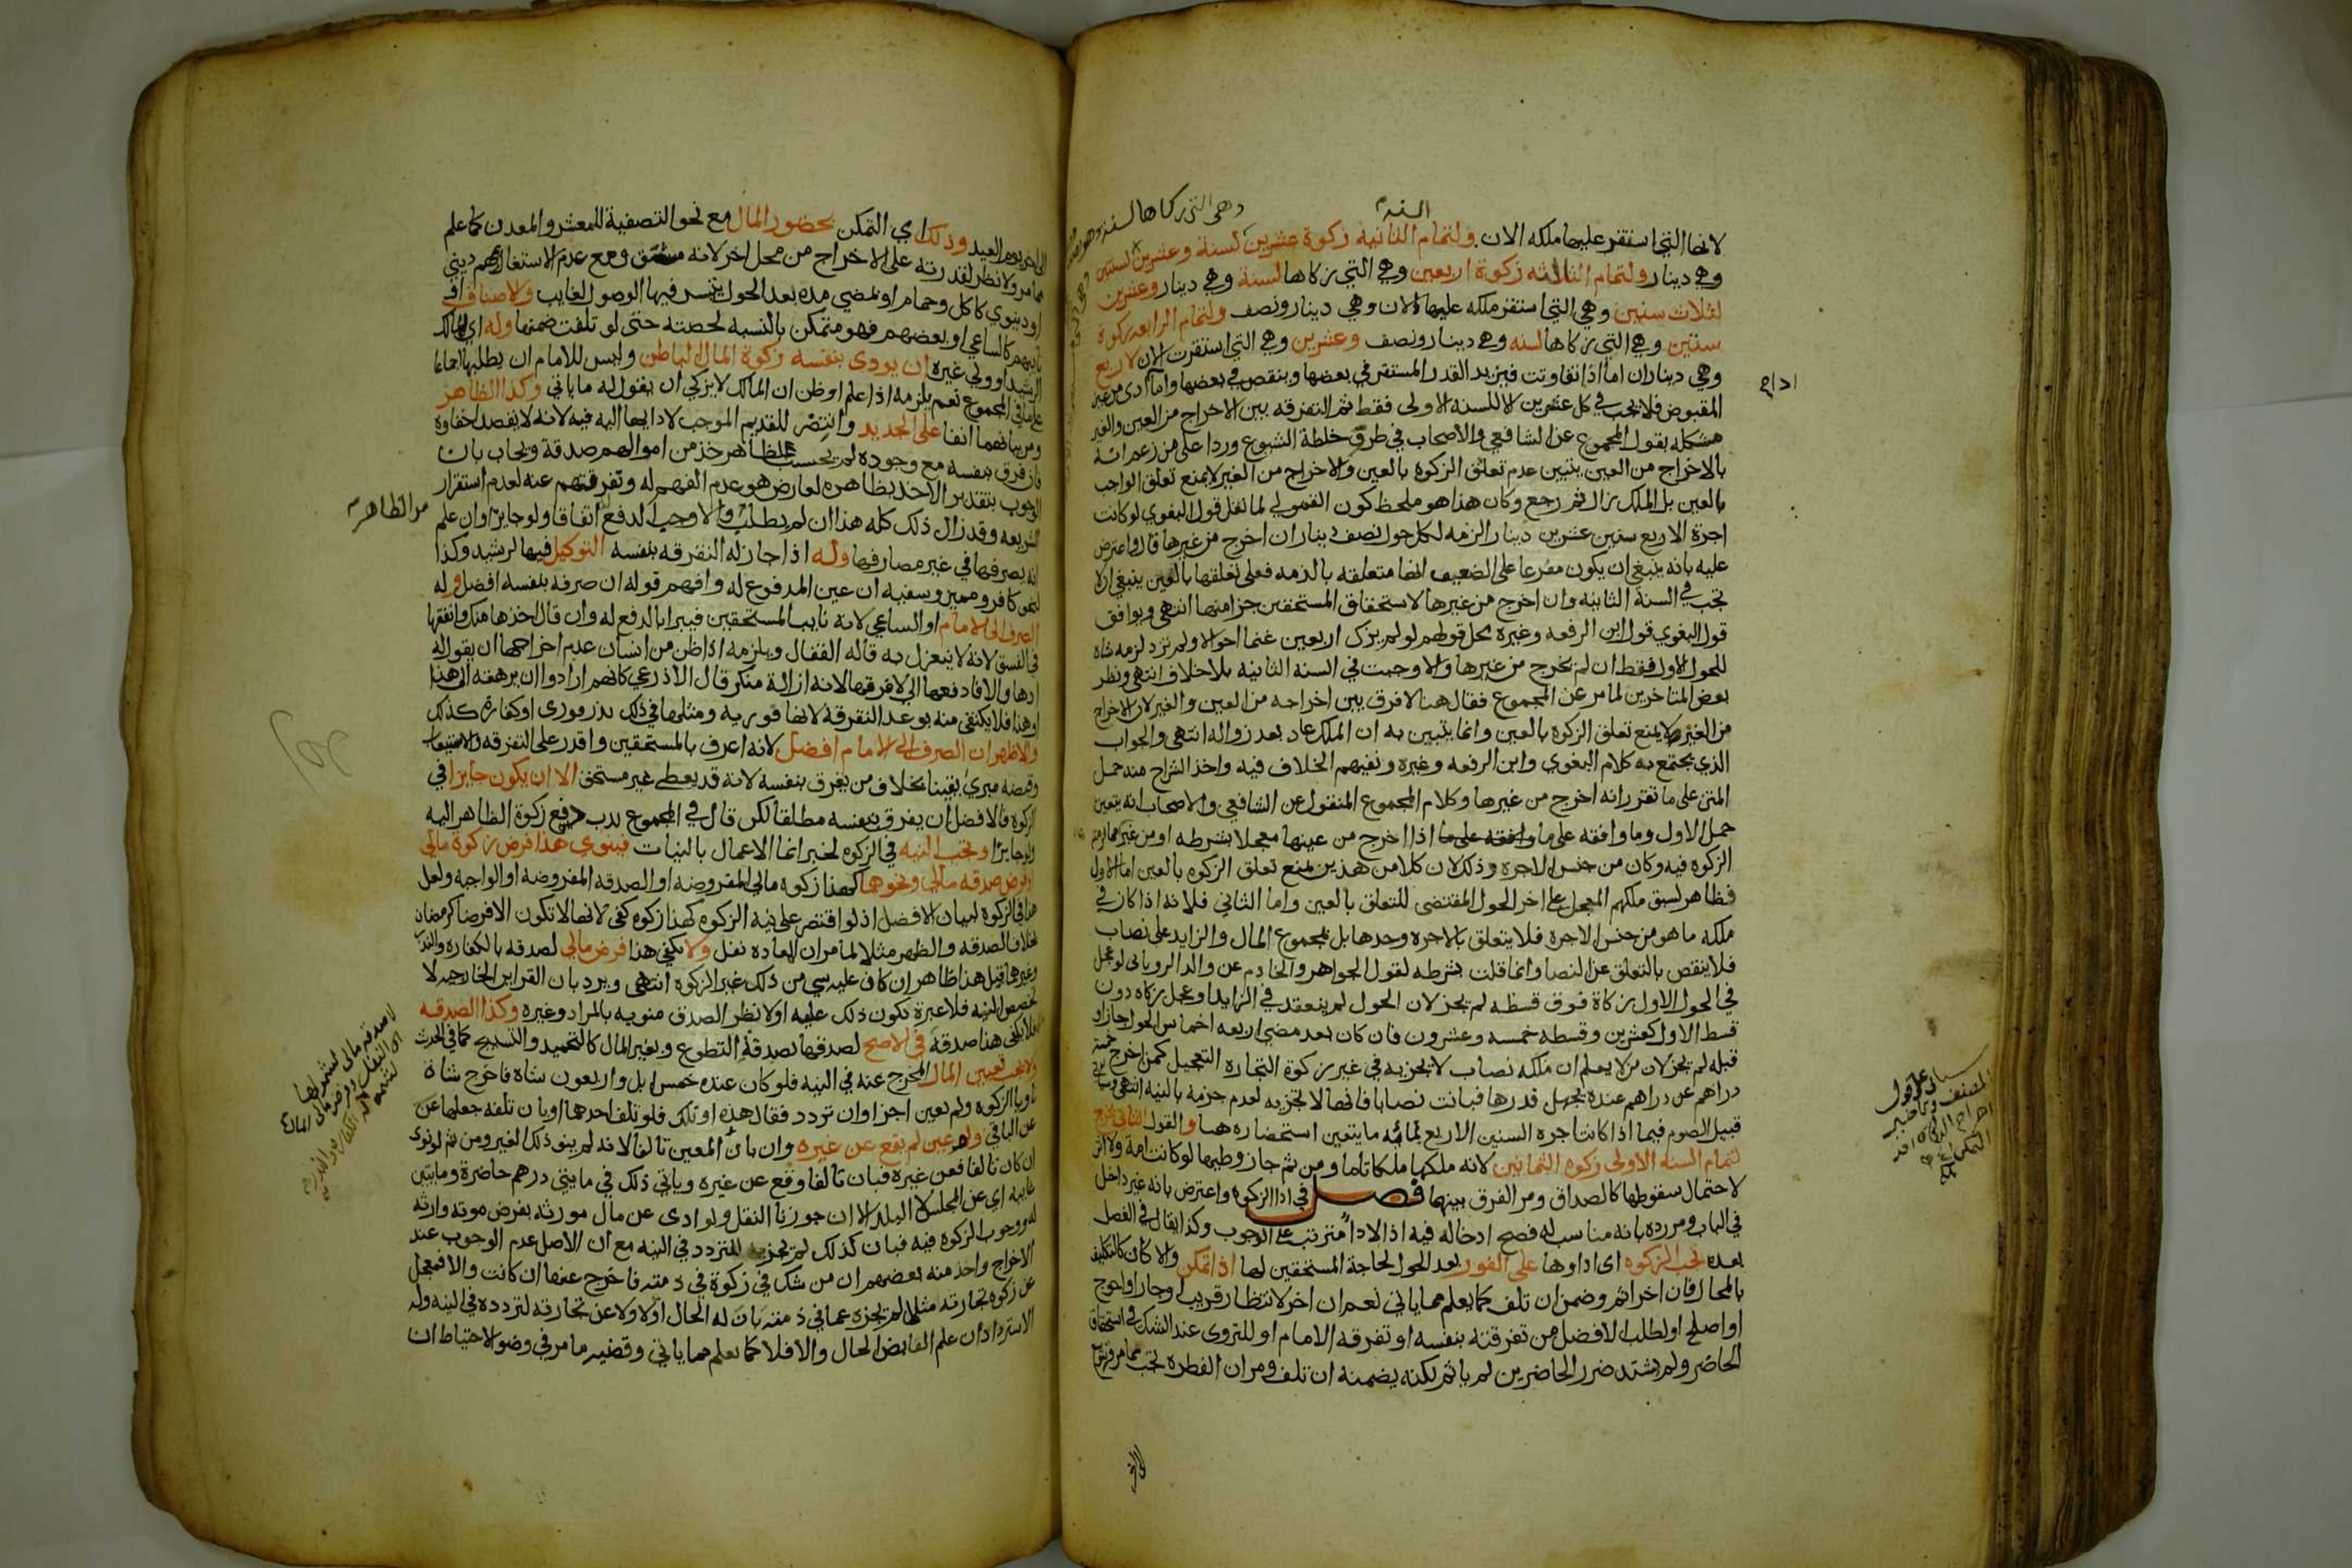 لانها التي استقر عليها ملكه الان ولتمام الثانيه زكوة عشرين لسنة وعشرين لسنتين
وهي دينار ولتمام الثالثه زكوة اربعين وهي التي زكاها لسنة وهي دينار وعشرين
لثلاث سنين وهي التي استقر ملكه عليها الان وهي دينار ونصف ولتمام الرابعه زكوة
ستين وهي التي زكاها لسنه وهي دينار ونصف وعشرين وهي التي استقرت الان لاربع
وهي ديناران اما اذا تفاوتت فيزيد القدر المستقر في بعضها وينقص في بعضها واما ادى من غير
المقبوض فلا تجب في كل عشرين الا للسنه الاولى فقط ثم التفرقه بين الاخراج من العين والغير
مشكله بقول المجموع عن الشافعي والاصحاب في طرق خلطة الشيوع وردا على من زعم انه
بالاخراج من العين يتبين عدم تعلق الزكوه بالعين والاخراج من الغير لا يمنع تعلق الواجب
بالعين بل الملك زال ثم رجع وكان هذا هو ملحظ كون القمولي لما نقل قول البغوي لو كانت
اجرة الاربع سنين عشرين دينار الزمه لكل حول نصف دينار ان اخرج من غيرها قال واعترض
عليه بانه ينبغي ان يكون مفرعا على الضعيف انها متعلقه بالذمه فعلى تعلقها بالعين ينبغي ان لا
تجب في السنة الثانيه وان اخرج من غيرها لاستحقاق المستحقين جزا منها انتهى ويوافق
قول البغوي قول ابن الرفعه وغيره محل قولهم لو لم يزك اربعين غنما احوالا ولم تزد لزمه شاه
للحول الاول فقط ان لم يخرج من غيرها والا وجبت في السنه الثانيه بلا خلاف انتهى ونظر
بعض المتاخرين لما مر عن المجموع فقال هنا لا فرق بين اخراجه من العين والغير لان الاخراج
من الغير لا يمنع تعلق الزكوه بالعين وانما يتبين به ان الملك عاد بعد زواله انتهى والجواب
الذي يجتمع به كلام البغوي وابن الرفعه وغيره ونفيهم الخلاف فيه واخذ الشراح منه حمل
المتن على ما تقرر انه اخرج من غيرها وكلام المجموع المنقول عن الشافعي والاصحاب انه يتعين
حمل الاول وما وافقه على ما اذا اخرج من عينها معجلا بشرطه او من غيرها
الزكوه فيه وكان من جنس الاجره وذلك لان كلا من هذين يمنع تعلق الزكوه بالعين اما الاول
فظاهر لسبق ملكهم المعجل على اخر الحول المقتضى للتعلق بالعين واما الثاني فلانه اذا كان في
ملكه ما هو من جنس الاجرة فلا يتعلق بالاجره وحدها بل بمجموع المال والزايد على نصاب
فلا ينقص بالتعلق عن النصاب وانما قلت بشرطه لقول الجواهر والخادم عن والد الروياني لو عجل
في الحول الاول زكاة فوق قسطه لم يجز لان الحول لم ينعقد في الزايد او عجل زكاه دون
قسط الاول كعشرين وقسطه خمسه وعشرون فان كان بعد مضي اربعه اخماس الحول جاز او
قبله لم يجز لان من لا يعلم ان ملكه نصاب لا يجزيه في غير زكوة التجاره التعجيل كمن اخرج خمسة
دراهم عن دراهم عنده يجهل قدرها فبانت نصابا فانها لا تجزيه لعدم جزمه بالنيه انتهى
قبيل الصوم فيما اذا كانت اجره السنين الاربع ثمانمائه ما يتعين استحضاره هنا والقول الثاني يخرج
لتمام السنه الاولى زكوه الثمانين لانه ملكها ملكا تاما ومن ثم جاز وطيها لو كانت امة ولا اثر
لاحتمال سقوطها كالصداق ومر الفرق بينهما فصل في ادا الزكوه واعترض بانه غير داخل
في الباب ومر رده بانه مناسب له فصح ادخاله فيه اذ الادا مترتب على الوجوب وكذا يقال في الفصل
بعده تجب الزكوه اي اداوها على الفور بعد الحول لحاجة المستحقين لها اذا تمكن والا كان كالتكليف
بالمحال فان اخر اثم وضمن ان تلف كما يعلم مما ياتي نعم ان اخر لانتظار قريب او جار او احوج
او اصلح او لطلب الافضل من تفرقته بنفسه او تفرقه الامام او للتروي عند الشك في استحقاق
الحاضر ولم يشتد ضرر الحاضرين لم ياثم لكنه يضمنه ان تلف ومر ان الفطره تجب
يوم العيد وذلك اي التمكن بحضور المال مع نحو التصفية للمعشر والمعدن كما علم
مما مر ولا نظر لقدرته على الاخراج من محل اخر لانه مشق ومع عدم الاستغال بمهم ديني
او دنيوي كاكل وحمام او لمضي مده بعد الحول يتيسر فيها الوصول لغايب والاصناف اي
نايبهم كالساعي او بعضهم فهو متمكن بالنسبه لحصته حتى لو تلفت ضمنها وله اي المالك
الرشيد او ولي غيره ان يودي بنفسه زكوة المال الباطن وليس للامام ان يطلبها اجماعا
على ما في المجموع نعم يلزمه اذا علم او ظن ان المالك لا يزكي ان يقول له ما ياتي وكذا الظاهر
ومر بيانهما انفا على الجديد وانتصر للقديم الموجب لادايها اليه فيه لانه لا يقصد اخفاوه
فان فرق بنفسه مع وجوده لم يحسب لظاهر خذ من اموالهم صدقة ويجاب بان
الوجوب بتقدير الاخذ بظاهره لعارض هو عدم الفهم له ونفرتهم عنه لعدم استقرار
الشريعه وقد زال ذلك كله هذا ان لم يطلب والا وجب الدفع اتفاقا ولو جايرا وان علم
انه يصرفها في غير مصارفها وله اذا جاز له التفرقه بنفسه التوكيل فيها لرشيد وكذا
لنحو كافر ومميز وسفيه ان عين المدفوع له وافهم قوله ان صرفه بنفسه افضل وله
الصرف الى الامام او الساعي لانه نايب المستحقين فيبرا بالدفع له وان قال اخذها منك وانفقها
في الفسق لانه لا ينعزل به قاله القفال ويلزمه اذا ظن من انسان عدم اخراجها ان يقول له
ادها والا فادفعها الي لافرقها لانه ازالة منكر قال الاذرعي كانهم ارادوا ان يرهقه الى هذا
او هذا فلا يكتفي منه بوعد التفرقة لانها فوريه ومثلها في ذلك نذر فوري او كفارة كذلك
والاظهر ان الصرف الى الامام افضل لانه اعرف بالمستحقين واقدر على التفرقه والاستيعاب
وقبضه مبري يقينا بخلاف من يفرق بنفسه لانه قد يعطي غير مستحق الا ان يكون جايرا في
الزكوه فالافضل ان يفرق بنفسه مطلقا لكن قال في المجموع ندب دفع زكوة الظاهر اليه
ولو جايرا وتجب النيه في الزكوه لخبر انما الاعمال بالنيات فينوي هذا فرض زكوة مالي
او فرض صدقه مالي ونحوهما كهذا زكوه مالي المفروضه او الصدقه المفروضه او الواجبه ولعل
هذا في الزكوة لبيان الافضل اذ لو اقتصر على نيه الزكوه كهذا زكوه كفى لانها لا تكون الا فرضا كرمضان
بخلاف الصدقه والظهر مثلا لما مر ان المعاده نفل ولا يكفي هذا فرض مالي لصدقه بالكفاره والنذر
وغيرهما قيل هذا ظاهر ان كان عليه شي من ذلك غير الزكوه انتهى ويرد بان القراين الخارجيه لا
تخصص النيه فلا عبرة بكون ذلك عليه اولا نظرا لصدق منويه بالمراد وغيره وكذا الصدقه
فلا يكفي هذا صدقة في الاصح لصدقها بصدقة التطوع وبغير المال كالتحميد والتسبيح كما في الحديث
ولا يجب تعيين المال المخرج عنه في النيه فلو كان عنده خمس ابل واربعون شاه فاخرج شاة
ناويا الزكوة ولم يعين اجزا وان تردد فقال هذه او تلك فلو تلف احدهما او بان تلفه جعلها عن
الباقي ولو عين لم يقع عن غيره وان بان المعين تالفا لانه لم ينو ذلك الغير ومن ثم لو نوى
ان كان تالفا فعن غيره فبان تالفا وقع عن غيره وياتي ذلك في مايتي درهم حاضرة ومايتين
غايبه اي عن المجلس لا البلد الا ان جوزنا النقل ولو ادى عن مال مورثه بفرض موته وارثه
له ووجوب الزكوه فيه فبان كذلك لم يجزيه للتردد في النيه مع ان الاصل عدم الوجوب عند
الاخراج واخذ منه بعضهم ان من شك في زكوة في ذمته فاخرج عنها ان كانت والا فمعجل
عن زكوه تجارته مثلا لم يجزه عما في ذمته بان له الحال اولا ولا عن تجارته لتردده في النيه وله
الاسترداد ان علم القابض الحال والا فلا كما يعلم مما ياتي وقضيه ما مر في وضو الاحتياط ان
من الظاهر